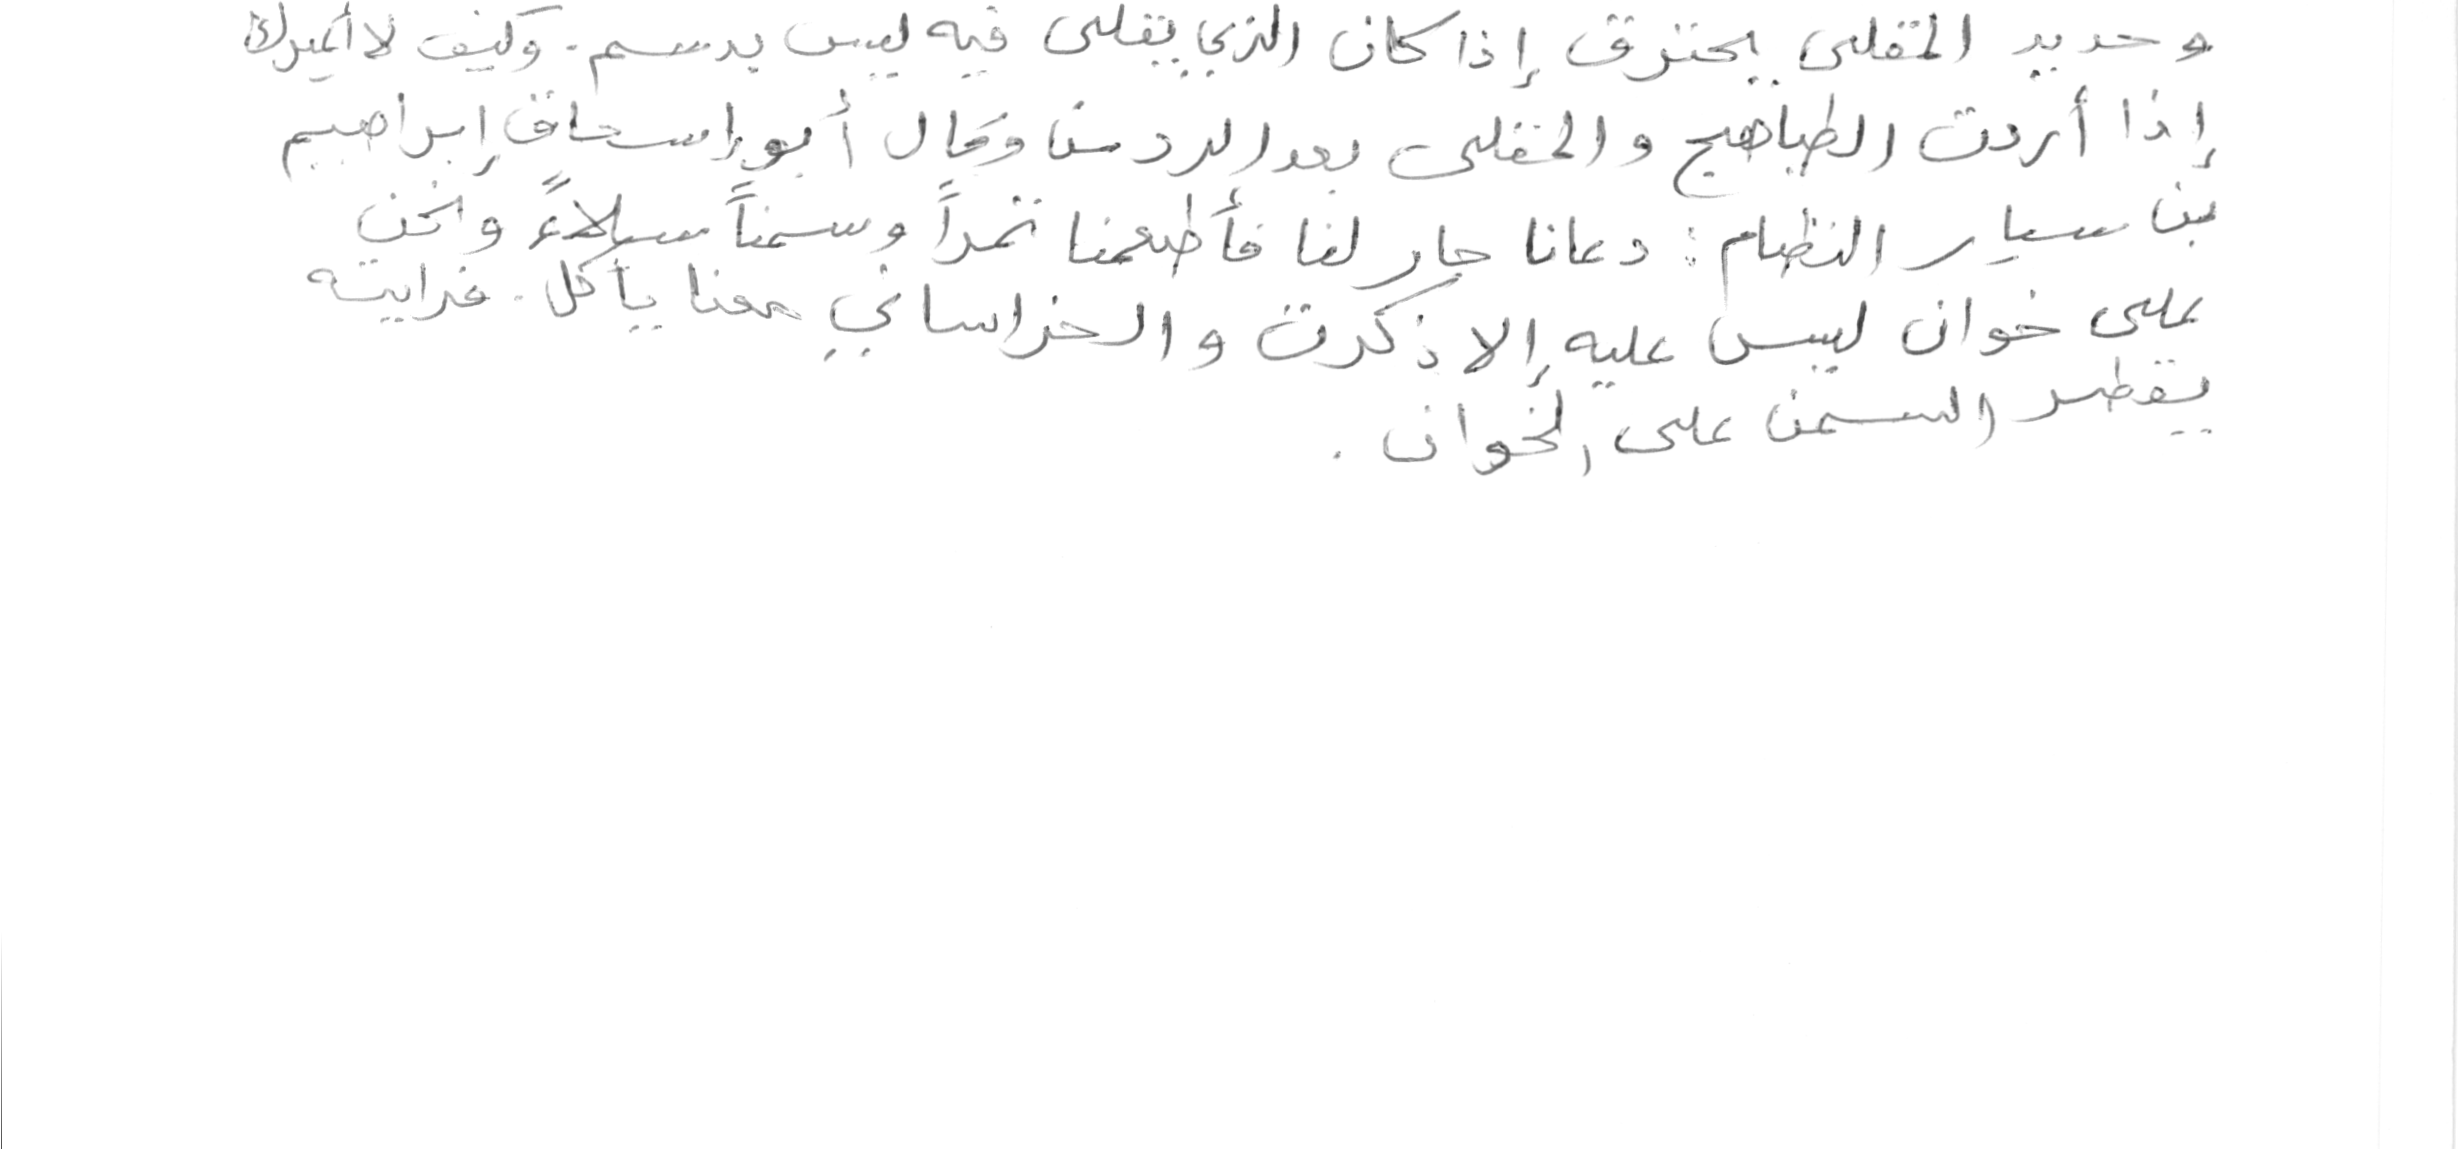 وحديد المقلى يحترق إذا كان الذي يقلى فيه ليس بدسم. وكيف لا أعيرك
إذا أردت الطباهج والمقلى بعد الردسنا وقال أبو إسحاق إبراهيم
بن سيار النظام: دعانا جار لنا فأطعمنا تمراً وسمناً سلاءً ونحن
على خوان ليس عليه إلا ذكرت والخراساني معنا يأكل. فرأيته
يقطر السمن على الخوان.